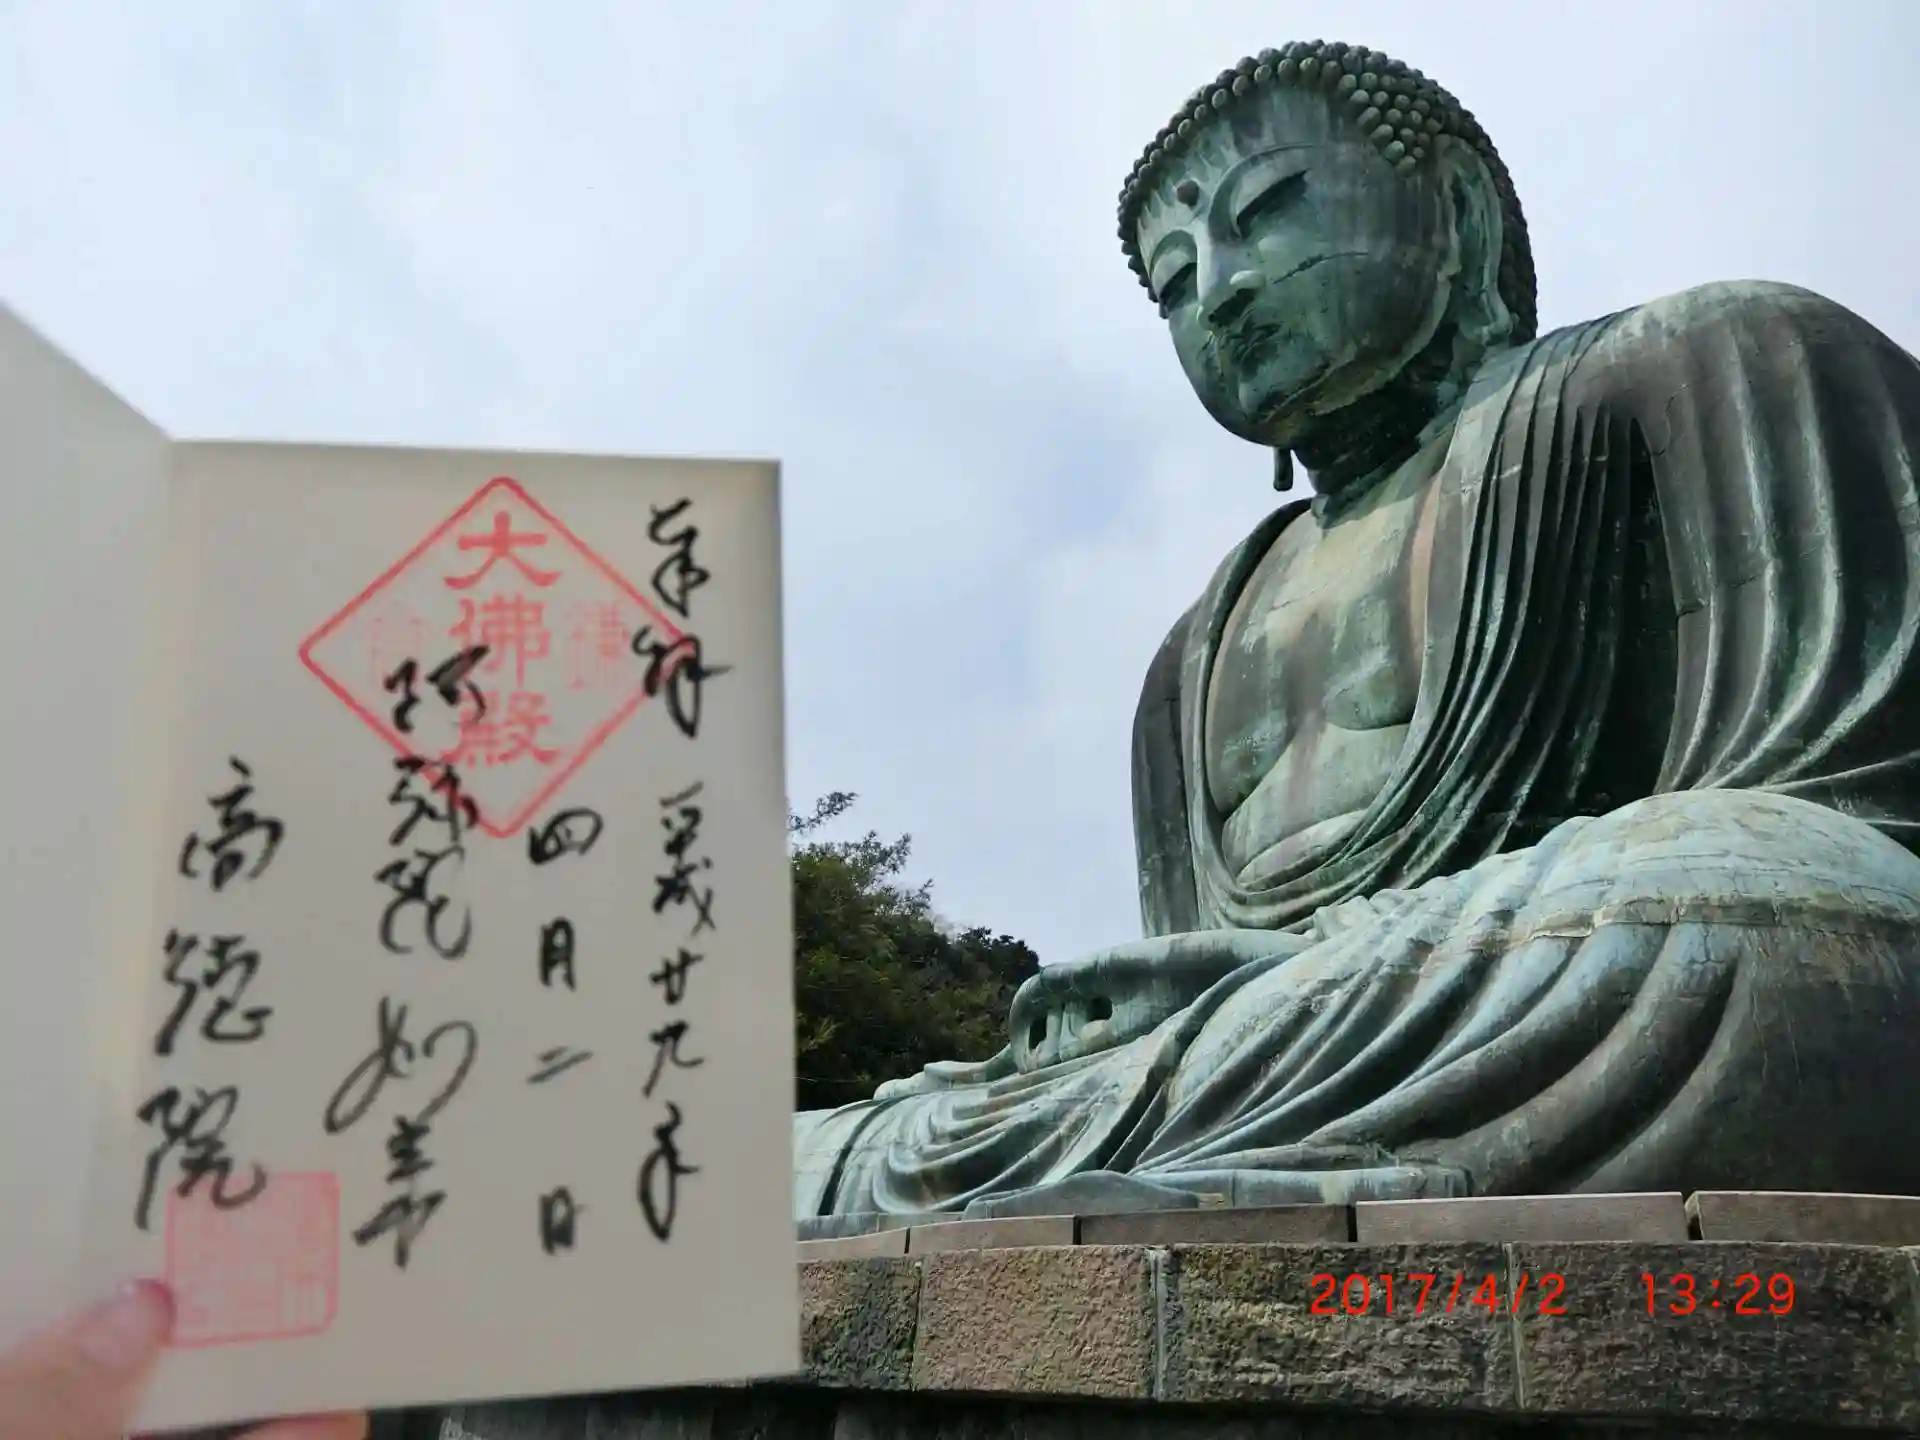 奉拝
平成廿九年
四月二日
大佛殿
阿弥陀如来
高徳院
2017/4/2 13:29